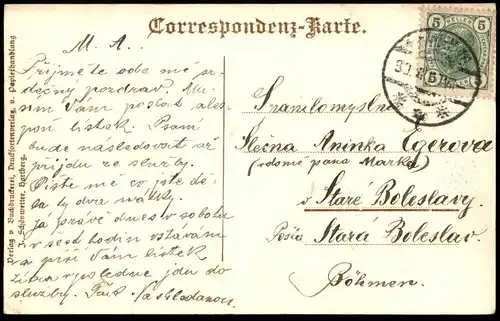 Correspondenz-Karte.
M. A.
Přijměte ode mě sr-
dečný pozdrav. Mu-
sím Vám poslat ales-
poň lístek. Psaní
bude následovat až
přijdu ze služby.
Pište mě co jste dě-
la ty dva
já právě dnes v sobotu
v šest hodin vstávám
a píši Vám lístek
odpoledne jdu do
služby. Na shledanou
Verlag v. Buchdruckerei, Drucksortenverlag, u. Papierhandlung
J. Schönwetter, Hartberg.
5 HELLER 5
Spanilomyslná
Slečna Aninka Egerova
(vdomě pana Marka)
v Staré Boleslavy
Pošta Stará Boleslav.
Böhmen.